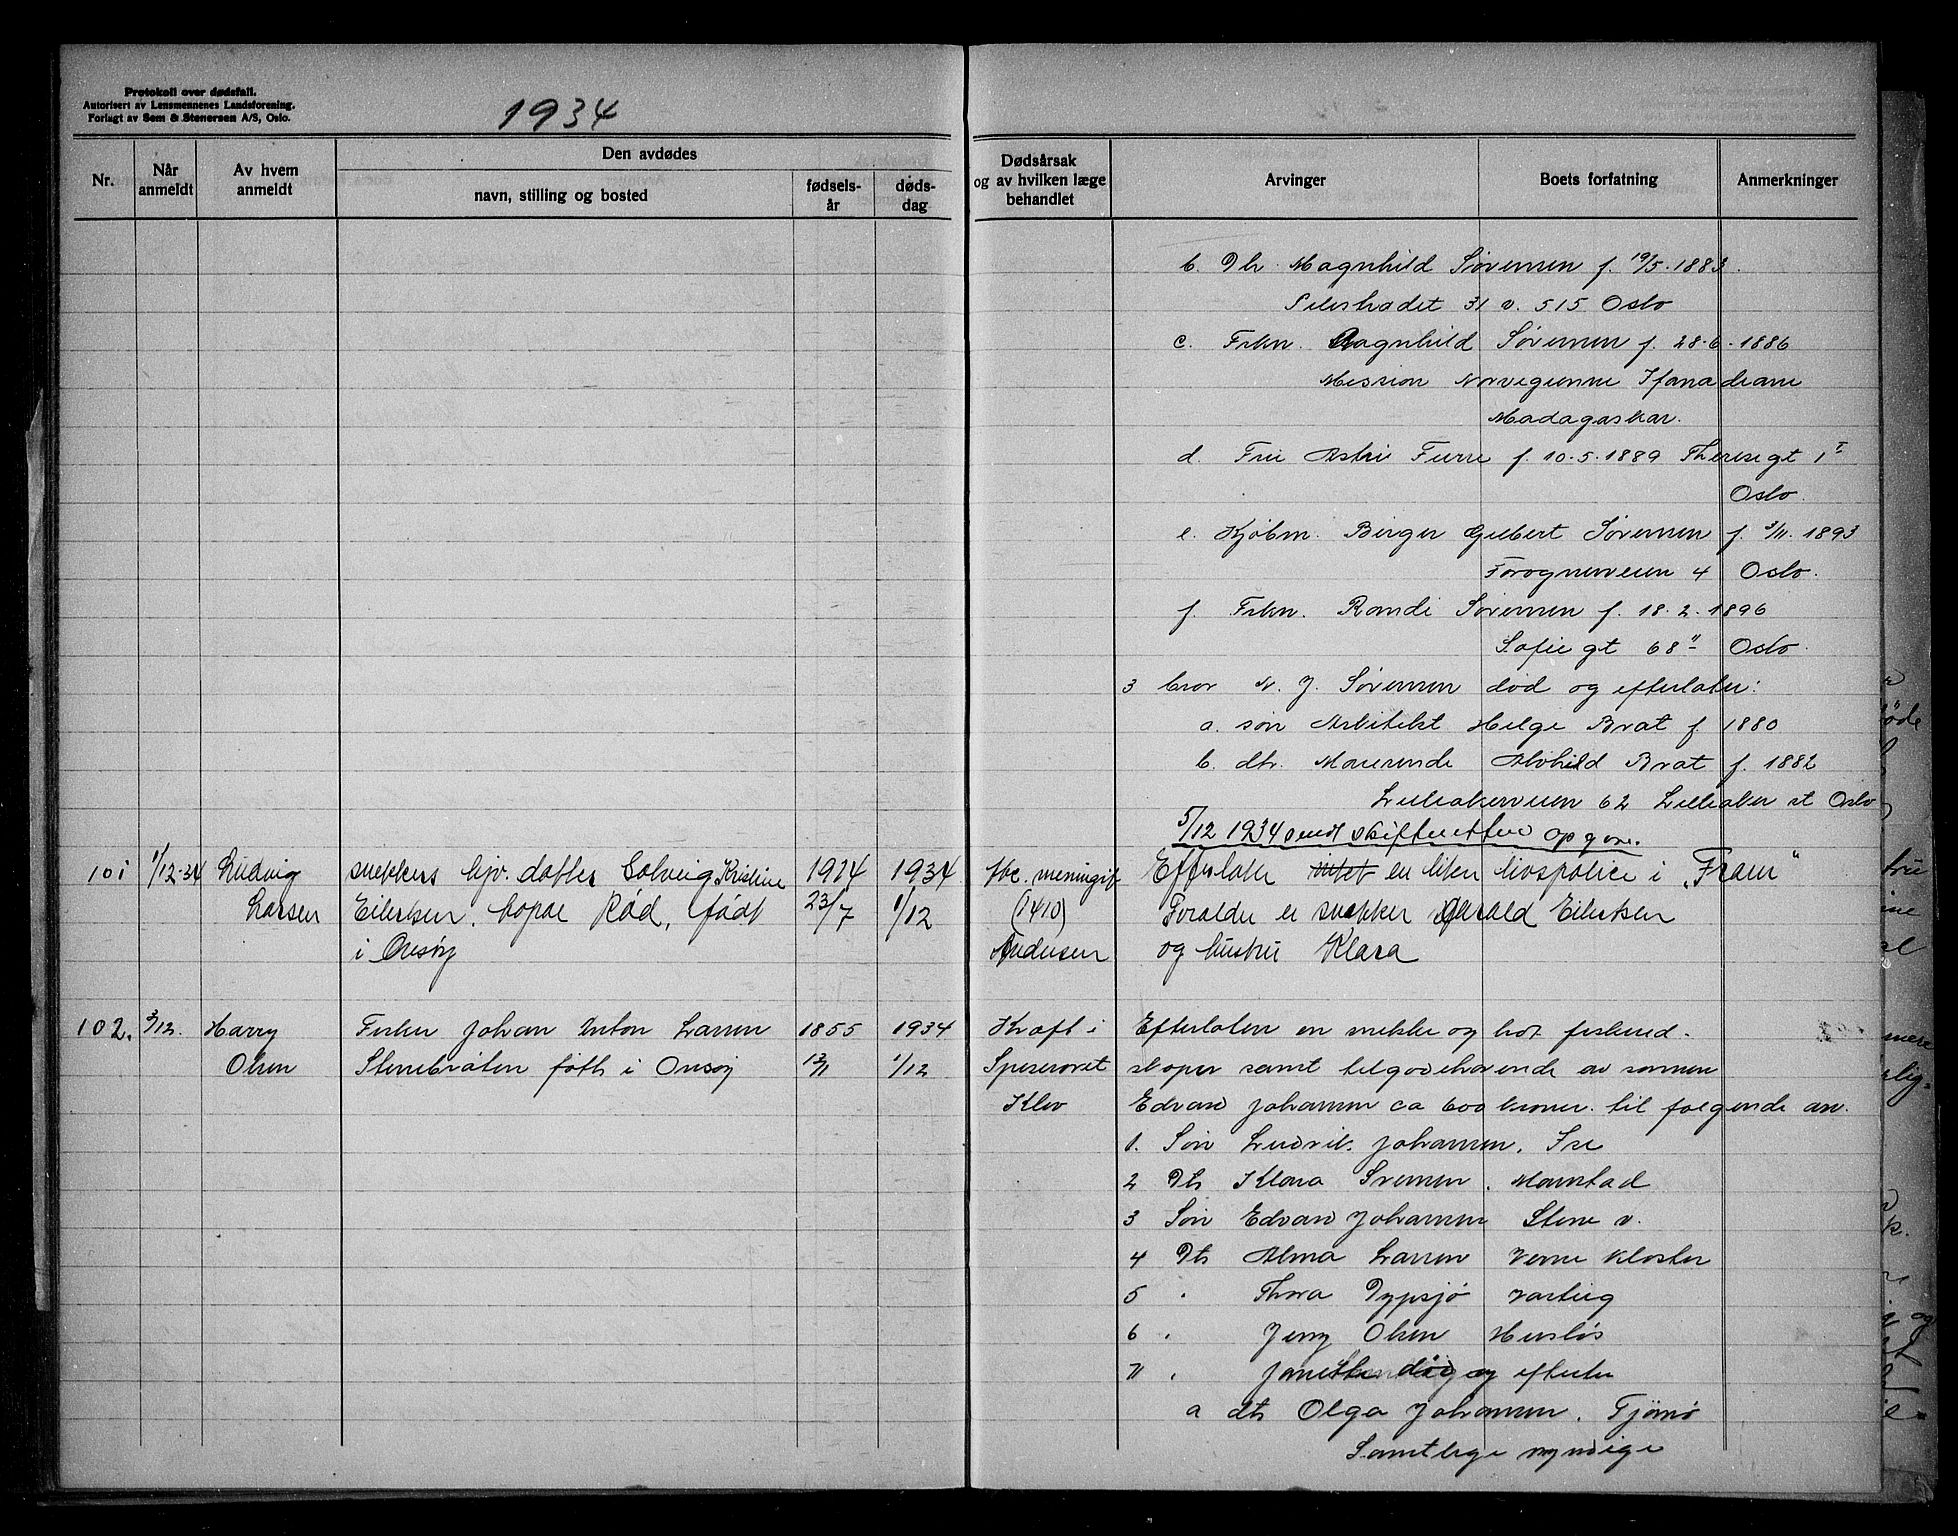 Protokoll over dødsfall.
Autorisert av Lensmennenes Landsforening.
Forlagt av Sem & Stenersen A/S, Oslo.
1934
Nr.
Når anmeldt
Av hvem anmeldt
Den avdødes
navn, stilling og bosted
fødsels-år
døds-dag
Dødsårsak og av hvilken læge behandlet
Arvinger
Boets forfatning
Anmerkninger
b. Dtr. Magnhild Sørensen f. 19/5. 1883.
31 v. 515 Oslo
c. Frkn. Ragnhild Sørensen f. 28-6-1886
Mission Norvegienne Ifanadiana
Madagaskar.
d. Fru Astri Furre f. 10-5-1889 Theresegt 1 I
Oslo.
e. Kjøbm. Birger Gilbert Sørensen f. 3/11. 1893
Frognerveien 4 Oslo.
f. Frkn. Randi Sørensen f. 18-2-1896
Sofie gt 68 II Oslo.
3 bror N. J. Sørensen død og efterlater:
a. søn Arkitekt Helge Brat f. 1880
b. dtr. Malerinde Alvhild Brat f. 1882
Lilleakerveien 62 Lilleaker st Oslo
5/12 1934 sendt skifteretten opgave.
101 1/12-34 Ludvig snekkers hjv. datter Solveig Kristine 1914 1934 tbc. meningit Efterlater intet en liten livspolice i "Fram"
Larsen Eilertsen. bopæl Rød, født 23/7 1/12 (1410) Foreldre er snekker Harald Eilertsen
i Onsøy Andersen og hustru Klara
102. 3/12. Harry Fisker Johan Anton Larsen 1855 1934 Kræft i Efterlater en snekke og hot. fiskered-
Olsen Stenebråten født i Onsøy 13/11 1/12 Spiserøret skaper samt tilgodehavende av sønnen
Klev Edvard Johansen ca 600 kroner. til følgende arv.
1. Søn Ludvik Johansen.
2 Dtr Klara Svensen. Maurstad
3 Søn Edvard Johansen Stene v.
4 Dtr Alma Larsen Verne Kloster
5 " Thora Dypsjø Varteig
6 " Jenny Olsen Husløs
7 " død og efterter
a dtr Olga Johansen. Tjømø
Samtlige myndige